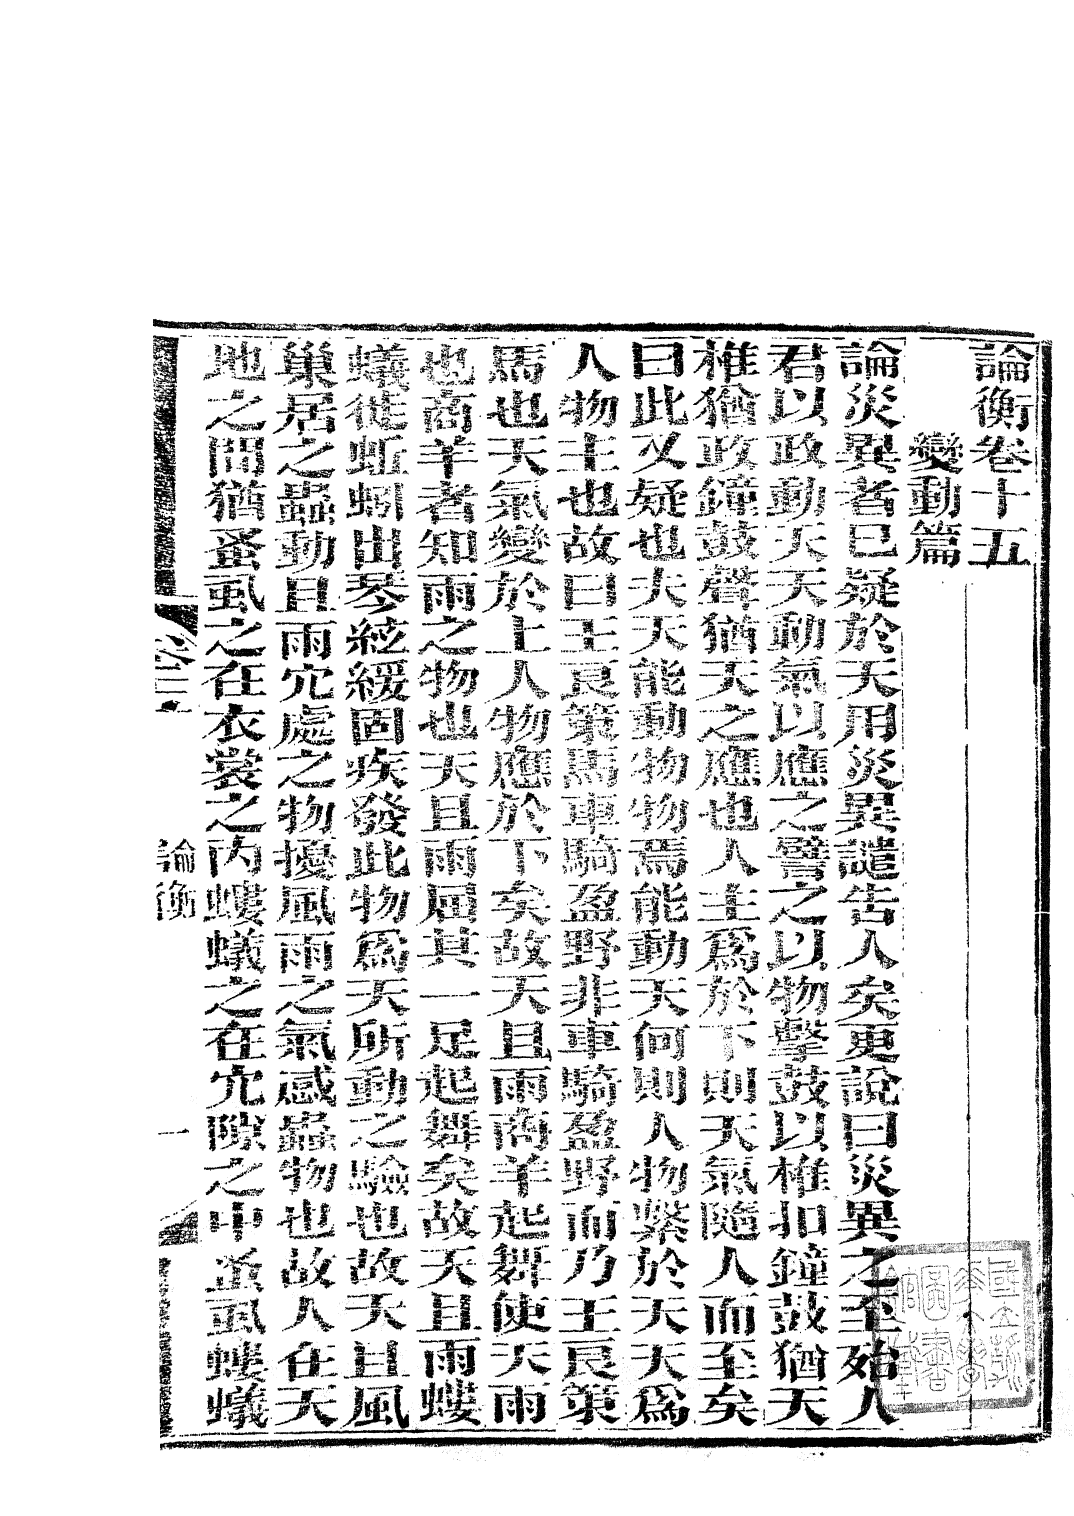 論衡卷十五
變動篇
論災異者已疑於天用災異譴告人矣更說曰災異之至殆人
君以政動天天動氣以應之譬之以物擊鼓以椎扣鐘鼓猶天
椎猶政鐘鼓聲猶天之應也人主爲於下則天氣隨人而至矣
曰此又疑也夫天能動物物焉能動天何則人物繫於天天爲
人物主也故曰王良策馬車騎盈野非車騎盈野而乃王良策
馬也天氣變於上人物應於下矣故天且雨商羊起舞使天雨
也商羊者知雨之物也天且雨屈其一足起舞矣故天且雨螻
蟻徙蚯蚓出琴絃緩固疾發此物爲天所動之驗也故天且風
巢居之蟲動且雨穴處之物擾風雨之氣感蟲物也故人在天
地之間猶蚤虱之在衣裳之内螻蟻之在穴隙之中蚤虱螻蟻
論衡
一